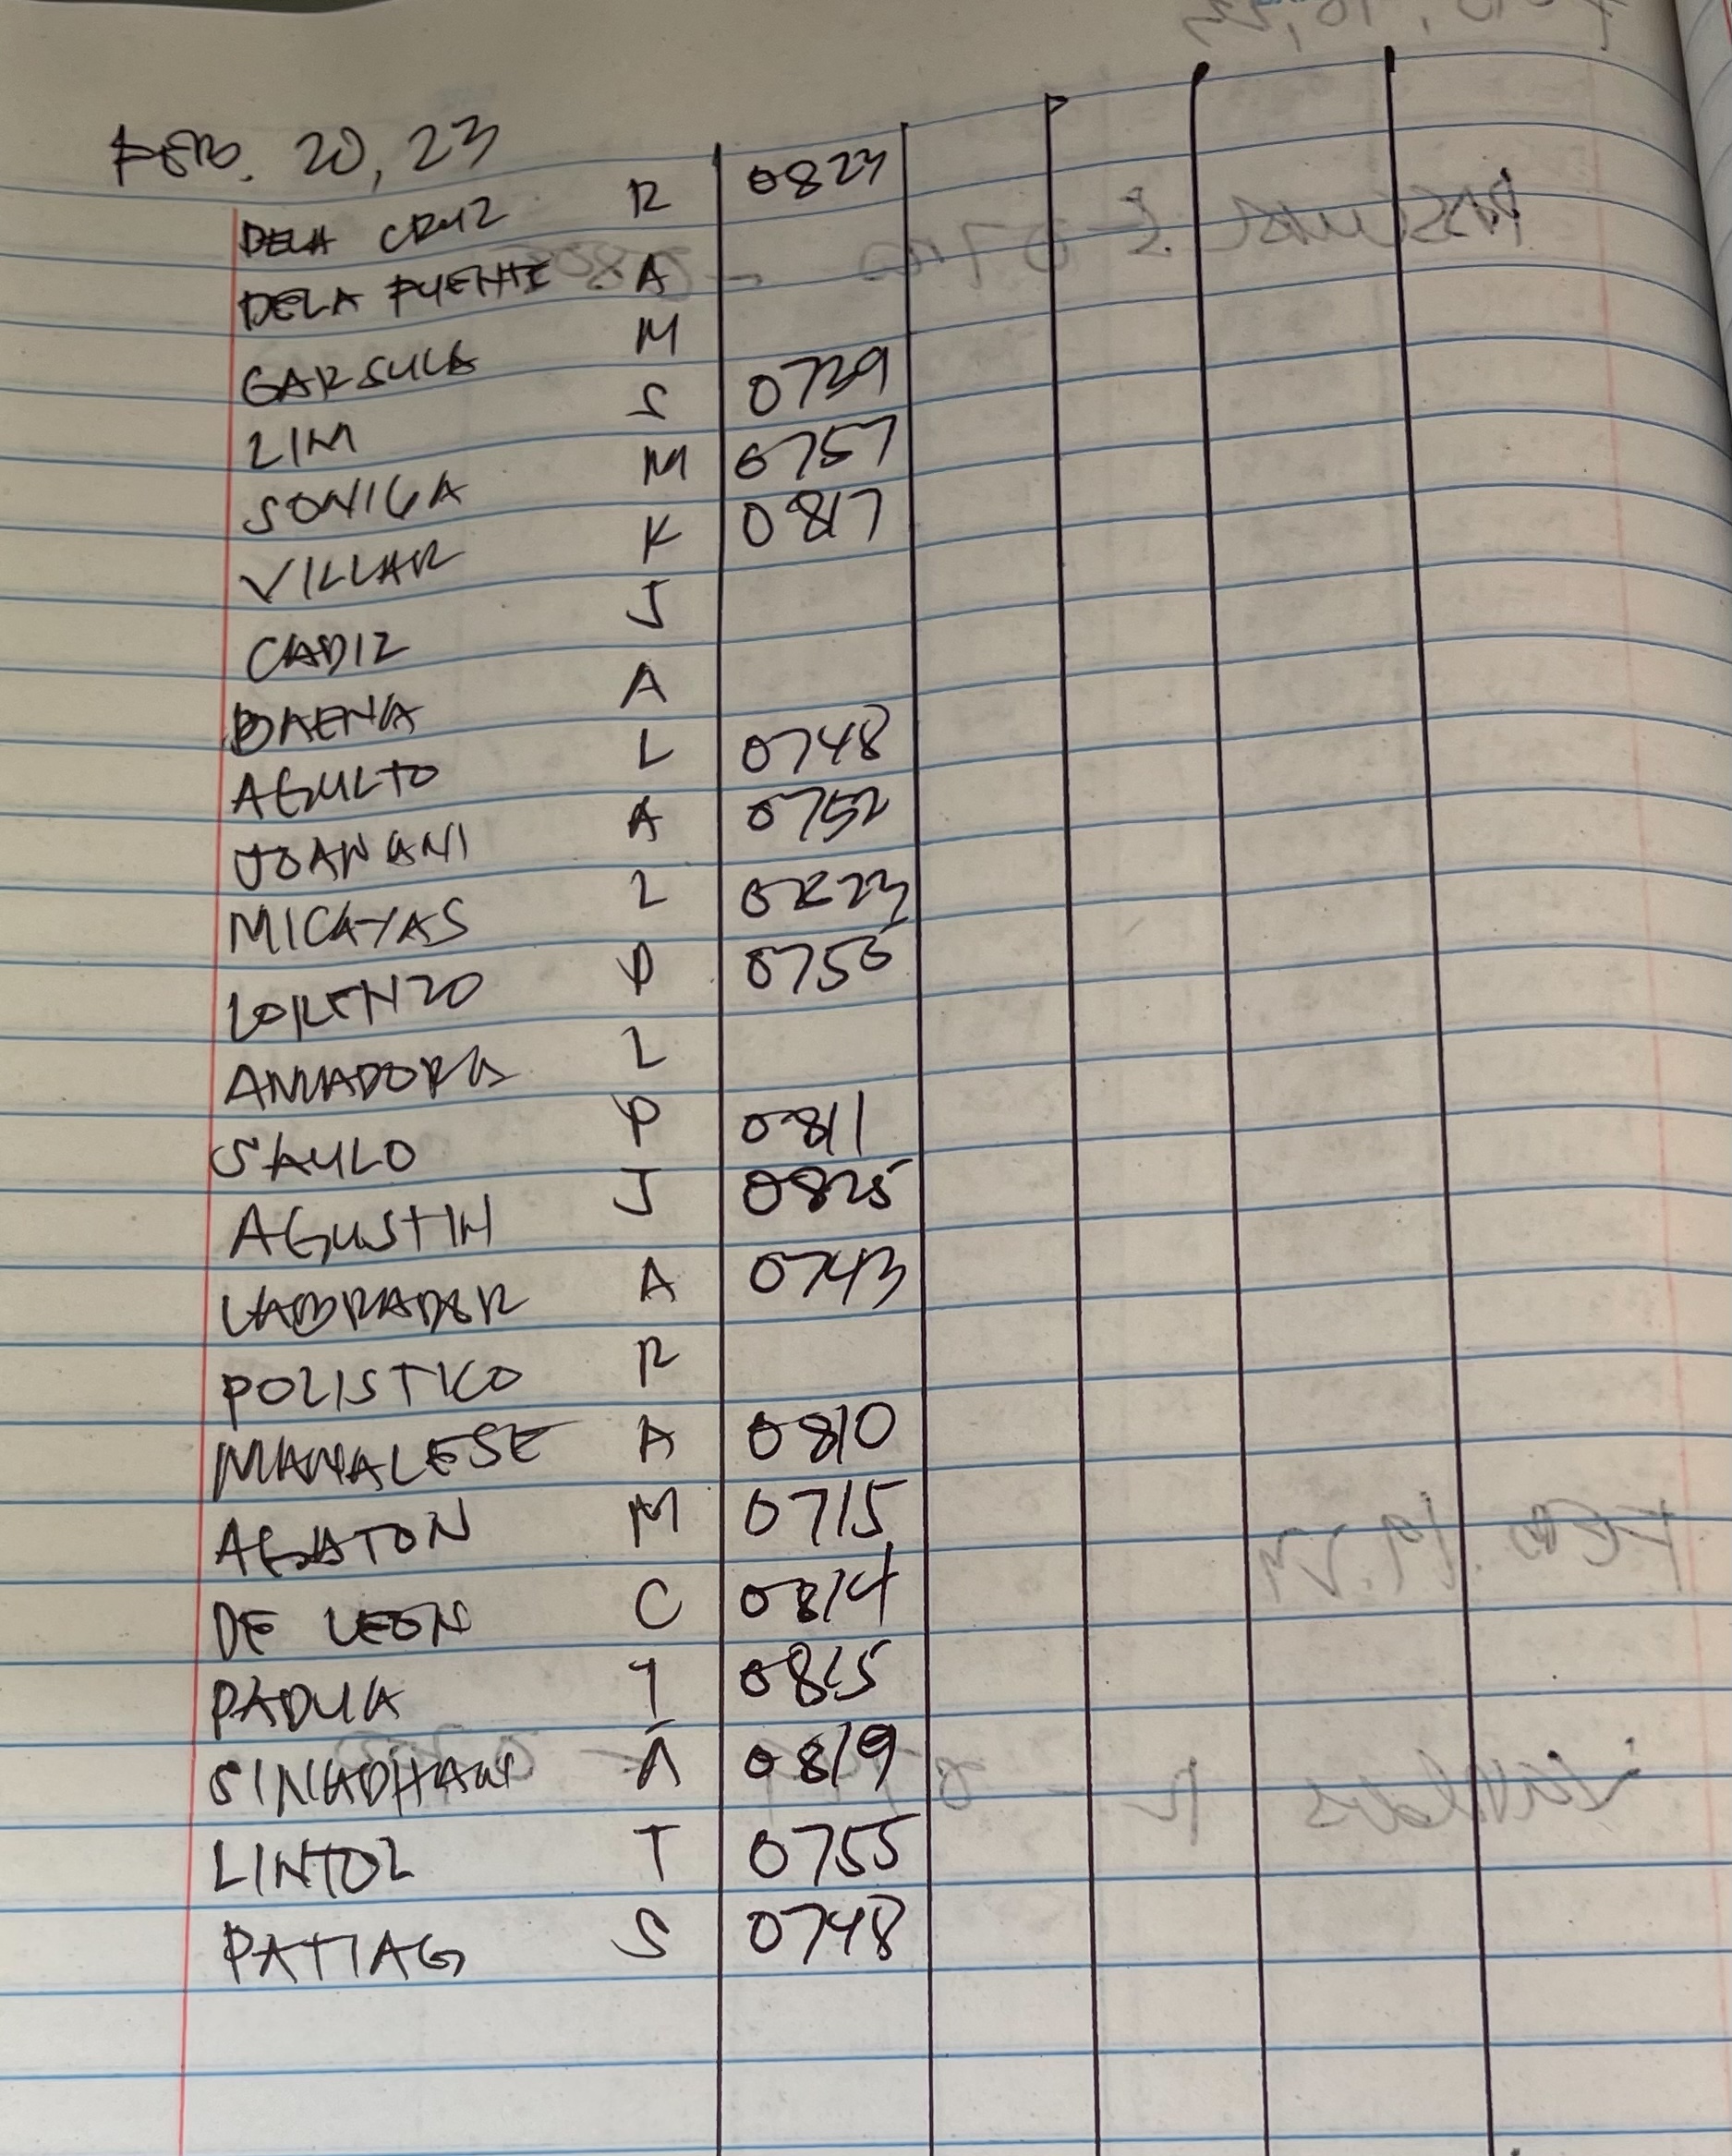 FEB. 20, 23
DELA CRUZ R 0823
DELA PUENTE A
GARSULA M
LIM S 0739
SONIGA M 0757
VILLAR K 0817
CADIZ J
BAENA A
AGULTO L 0748
JOANGNI A 0752
MICAYAS L 0823
LORENZO P 0756
AMADORA L
SAULO P 0811
AGUSTIN J 0825
LABRADOR A 0743
POLISTICO R
MANALESE A 0810
AGATON M 0715
DE LEON C 0814
PADUA I 0815
A 0819
LINTOL T 0755
PATIAG S 0748